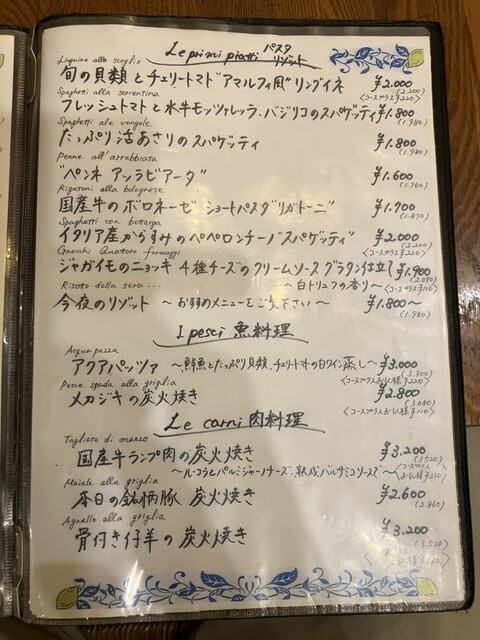 Le primi piatti パスタ リゾット
Linguine alla scoglio
旬の貝類とチェリートマト "アマルフィ風" リングイネ ¥2.000
(2.200)
Spaghetti alla sorrentina
〈コースプラス¥220〉
フレッシュトマトと水牛モッツァレッラ、バジリコのスパゲッティ ¥1.800
(1.980)
Spaghetti ale vongole
たっぷり活あさりのスパゲッティ ¥1.800
(1.980)
Penne all'arrabbiata
"ペンネ アッラビアータ" ¥1.600
(1.760)
Rigatoni alla bolognese
国産牛のボロネーゼ ショートパスタ"リガトーニ" ¥1.700
(1.870)
Spaghetti con botarga
イタリア産からすみのペペロンチーノ"スパゲッティ" ¥2.000
(2.200)
Gnocchi Quattro formaggi
〈コースプラス¥220〉
ジャガイモのニョッキ 4種チーズのクリームソース グラタン仕立て ¥1.900
(2.090)
Risoto della sera....
〜白トリュフの香り〜
〈コースプラス¥110〉
今夜のリゾット 〜おすすめメニューをご覧下さい〜 ¥1.800〜
(1.980)
I pesci 魚料理
Acqua pazza
アクアパッツァ 〜鮮魚とたっぷり貝類、チェリートマトの白ワイン蒸し〜 ¥3.000
(3.300)
Pesce spada alla griglia
〈コースプラスお1人様¥220〉
メカジキの炭火焼き ¥2.800
(3.080)
〈コースプラスお1人様¥110〉
Le carni 肉料理
Tagliata di manzo
国産牛ランプ肉の炭火焼き ¥3.200
(3.520)
〜ルーコラとパルミジャーノチーズ、熟成バルサミコソースで〜
〈コースプラスお1人様¥330〉
Maiale alla griglia
本日の銘柄豚 炭火焼き ¥2.600
(2.860)
Agnello alla griglia
骨付き仔羊の炭火焼き ¥3.200
(3.520)